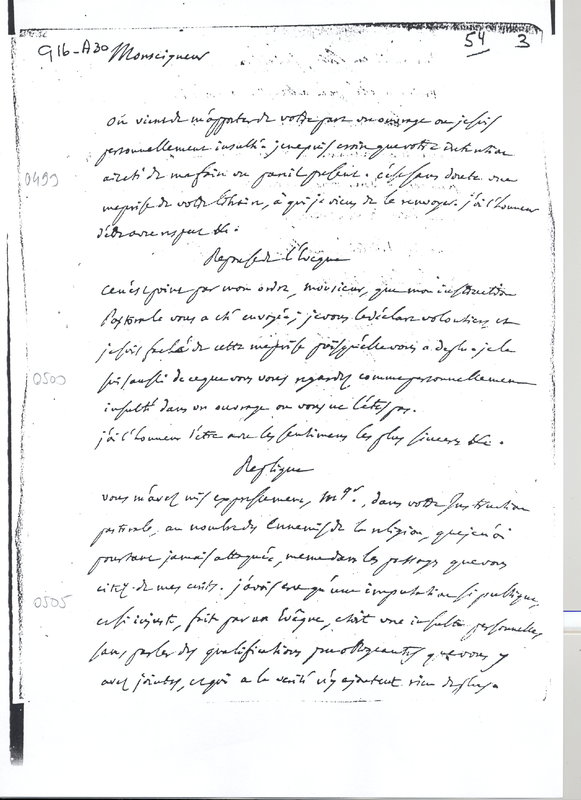 G16-A30
54 3
Monseigneur
On vient de m'apporter de votre part un ouvrage ou je suis
personnellement insulté. je ne puis croire que votre intention
ait été de me faire un pareil present. c'est sans doute une
meprise de votre libraire, à qui je viens de le renvoyer. j'ai l'honneur
d'être avec respect &c.
Reponse de l'Eveque
Ce n'est point par mon ordre, monsieur, que mon instruction
Pastorale vous a été envoyée; je vous le déclare volontiers et
je suis faché de cette meprise puisqu'elle vous a deplu. je le
suis aussi de ce que vous vous regardez comme personnellement
insulté dans un ouvrage ou vous ne l'êtes pas.
j'ai l'honneur d'être avec les sentimens les plus sinceres &c.
Replique
vous m'avez mis expressement, Mgr., dans votre Instruction
pastorale, au nombre des Ennemis de la religion, que je n'ai
pourtant jamais attaquée, meme dans les passages que vous
citez de mes ecrits. j'avois cru qu'une imputation si publique,
et si injuste, faite par un Evêque, etoit une insulte personnelle,
sans parler des qualifications que vous y
avez jointes, et qui a la verité n'y ajoutent rien de plus.
0499
0500
0505